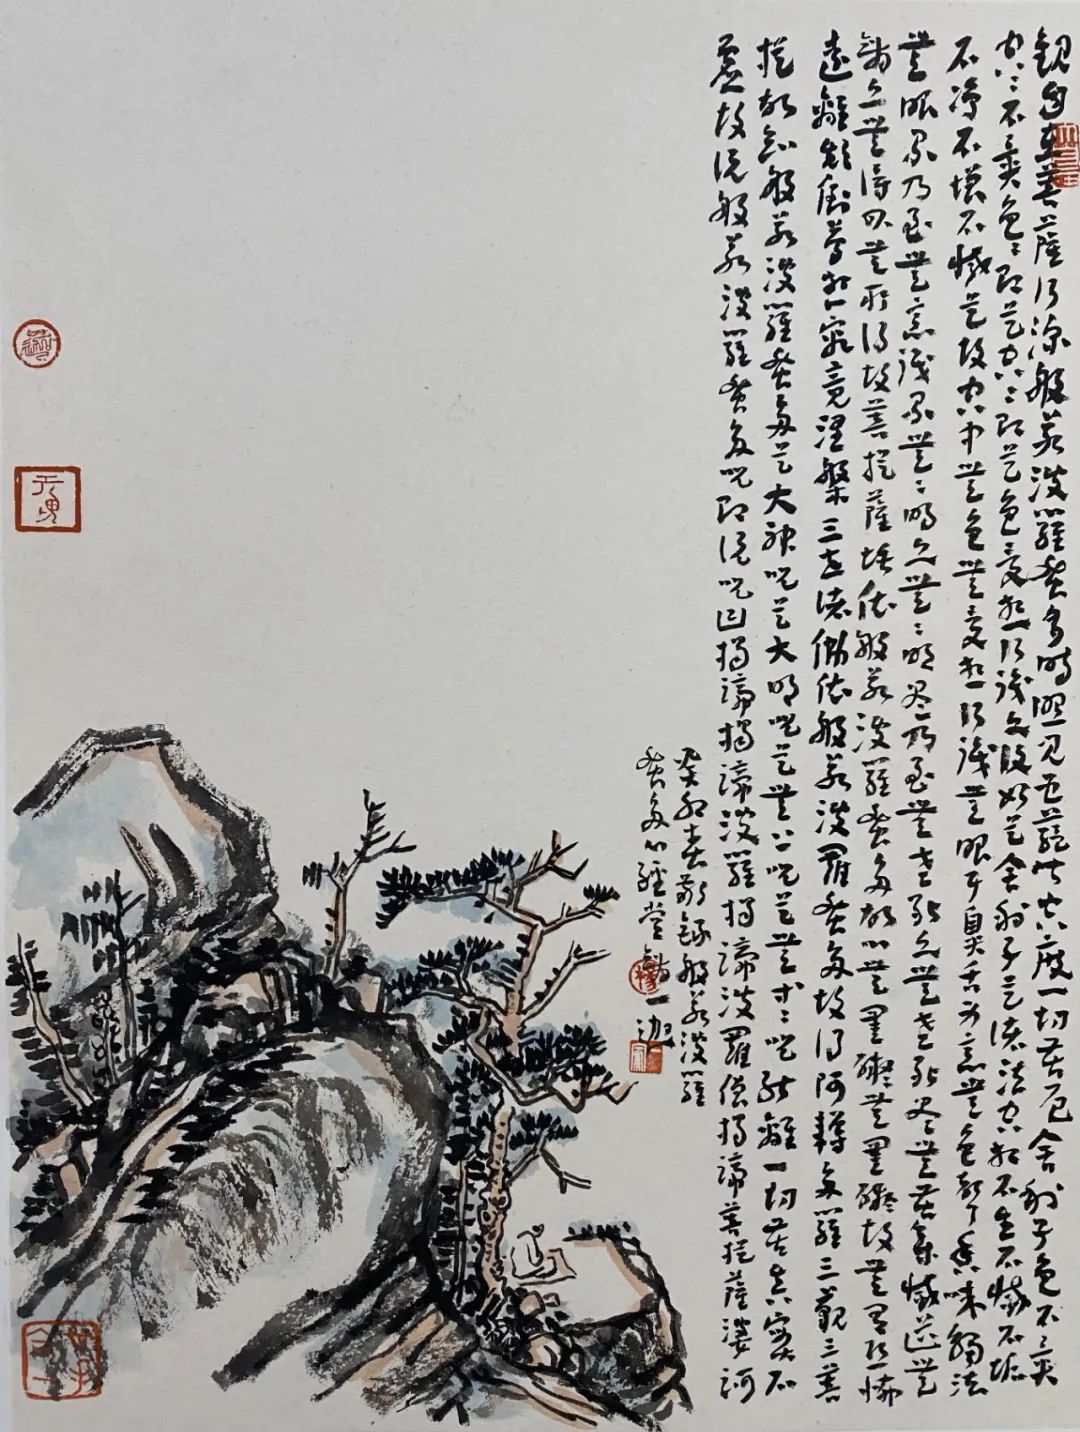 觀自在菩薩行深般若波羅蜜多時照見五蘊皆空度一切苦厄舍利子色不異
空〻不異色〻即是空〻即是色受想行識亦復如是舍利子是諸法空相不生不滅不垢
不淨不增不減是故空中無色無受想行識無眼耳鼻舌身意無色聲香味觸法
無眼界乃至無意識界無〻明亦無〻明盡乃至無老死亦無老死盡無苦集滅道無
智亦無得以無所得故菩提薩埵依般若波羅蜜多故心無罣礙無罣礙故無有恐怖
遠離顛倒夢想究竟涅槃三世諸佛依般若波羅蜜多故得阿耨多羅三藐三菩
提故知般若波羅蜜多是大神咒是大明咒是無上咒是無等〻咒能離一切苦真實不
虛故說般若波羅蜜多咒即說咒曰揭諦揭諦波羅揭諦波羅僧揭諦菩提薩婆訶
癸卯春敬錄般若波羅
蜜多心經